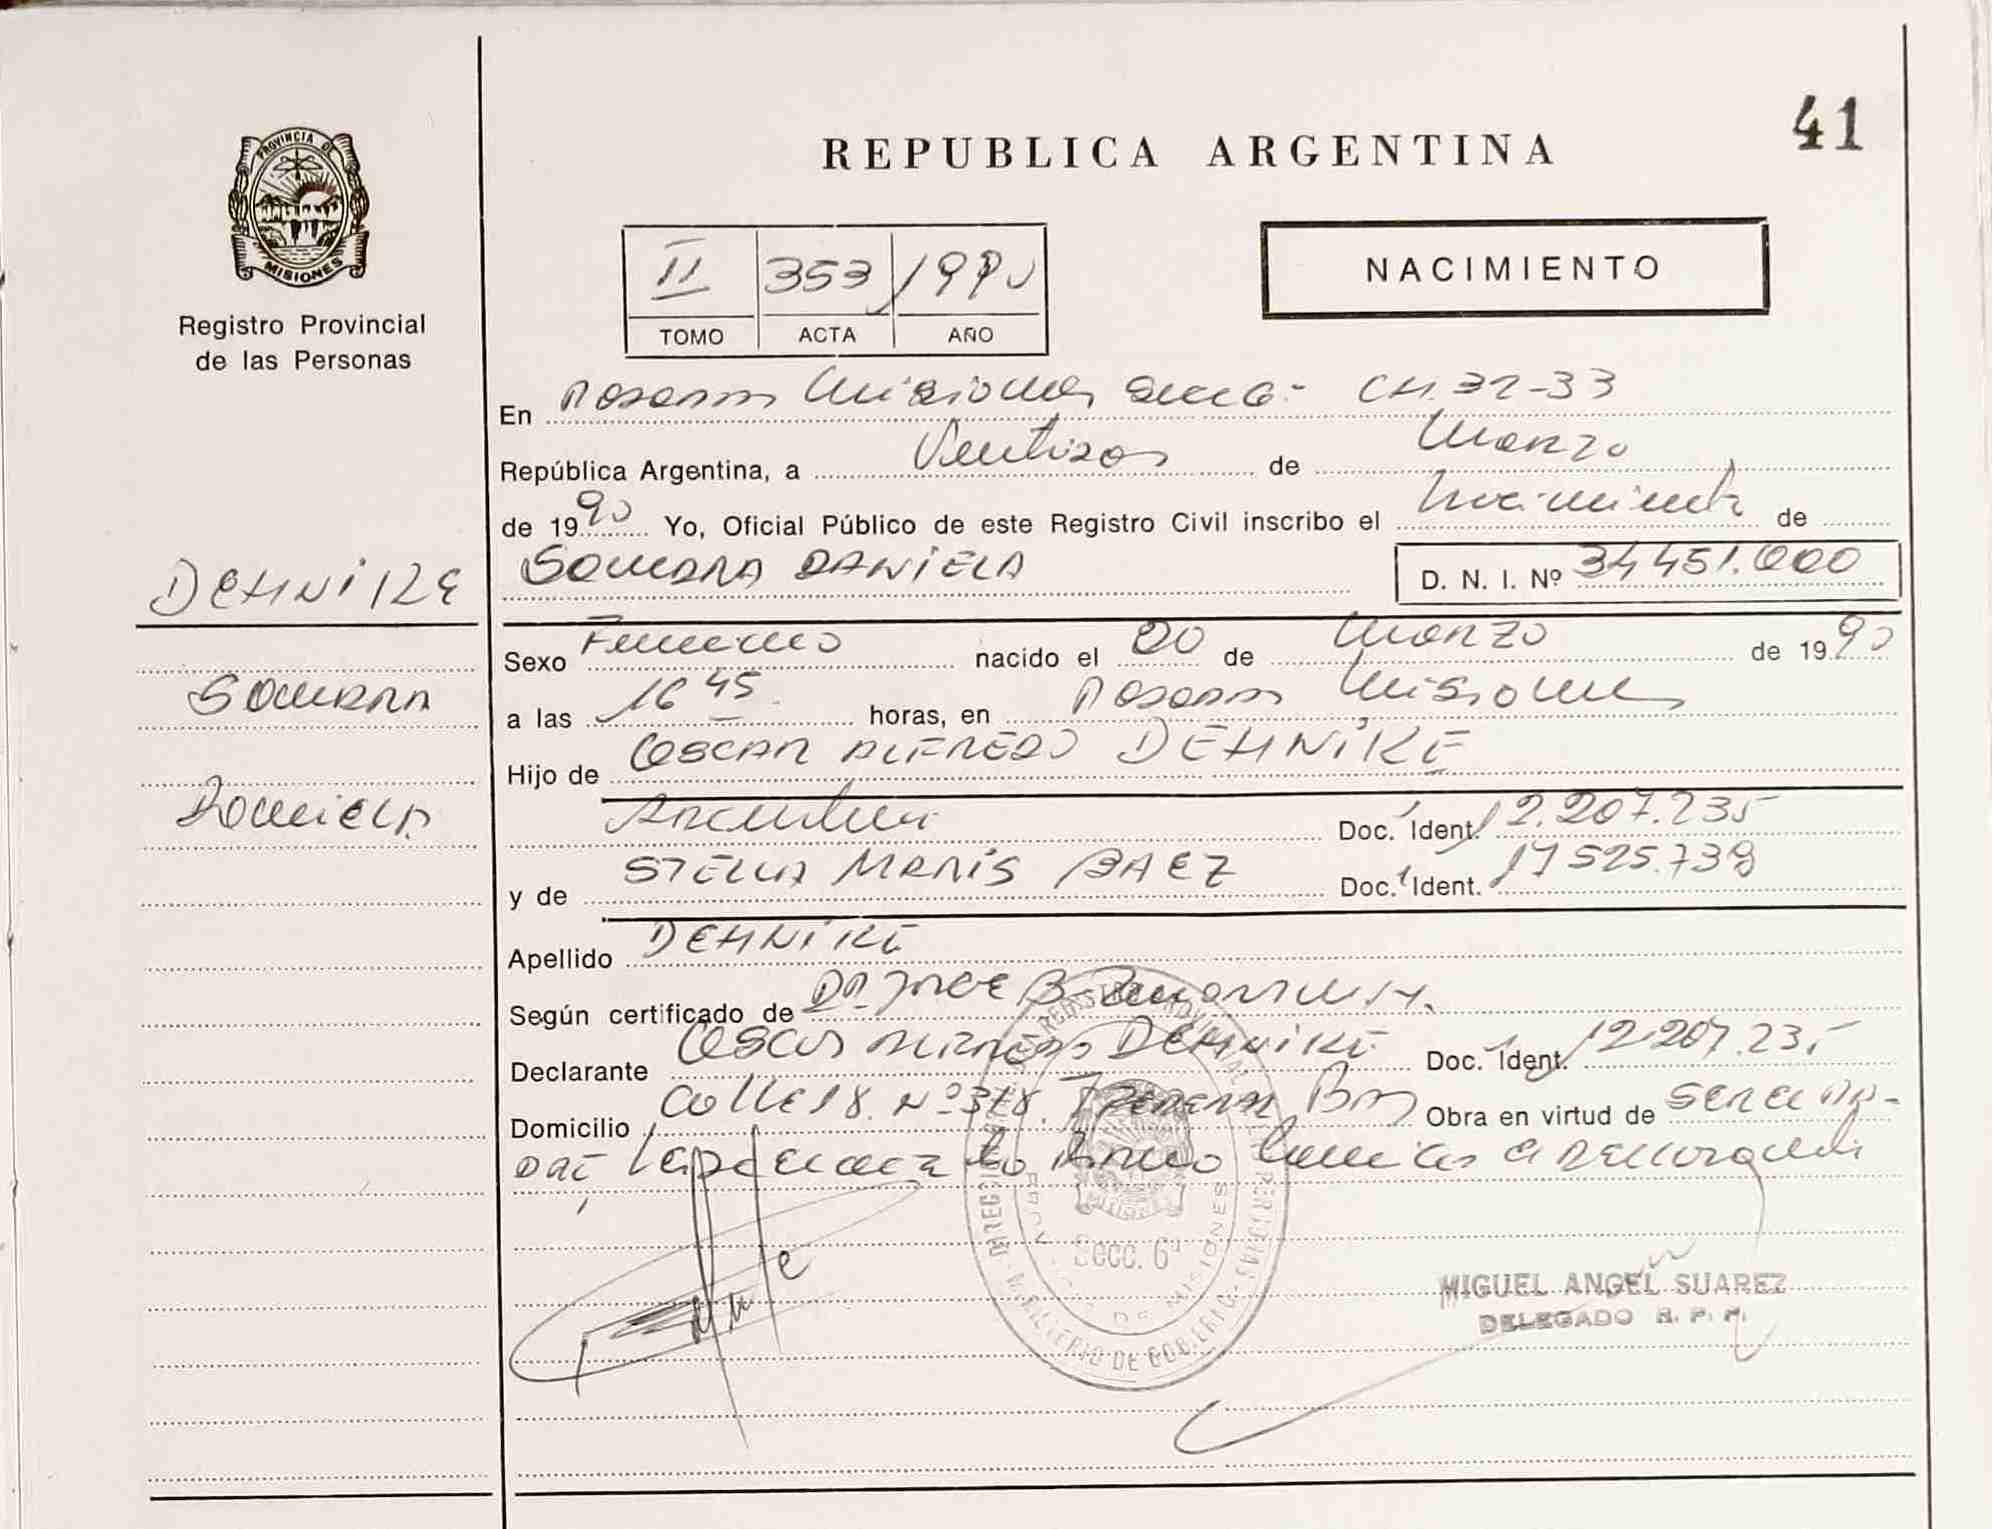 41
REPUBLICA ARGENTINA
PROVINCIA DE
MISIONES
Registro Provincial
de las Personas
II 353 1990
TOMO ACTA AÑO
NACIMIENTO
En Posadas Misiones Secc 6ª CH. 32-33
República Argentina, a Ventidos de Marzo
de 1990 Yo, Oficial Público de este Registro Civil inscribo el Nacimiento de
DEHNIKE
SANDRA DANIELA D. N. I. Nº 34 451.000
Sexo Femenino nacido el 20 de Marzo de 1990
SANDRA
a las 16 45 horas, en Posadas Misiones
Hijo de OSCAR ALFREDO DEHNIKE
DANIELA
Argentina Doc. Ident. 12.207.235
y de STELLA MARIS BAEZ Doc. Ident. 17 525.739
Apellido DEHNIKE
Según certificado de DR. JORGE B.
Declarante OSCAR ALFREDO DEHNIKE Doc. Ident. 12.207.235
Domicilio CALLE 18. Nº 378. Obra en virtud de
Secc. 6ª
MINISTERIO DE GOBIERNO
MIGUEL ANGEL SUAREZ
DELEGADO R. P. P.